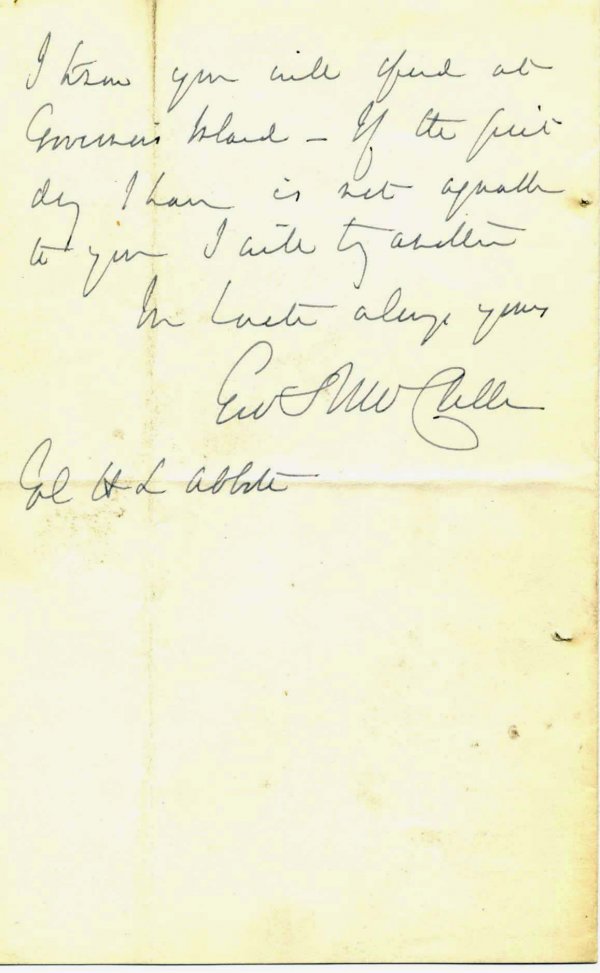 I know you will spend at
Governors Island – If the first
day I have is not agreeable
to you I will try another
In haste always yours
Geo B McClellan
Col H L Abbot